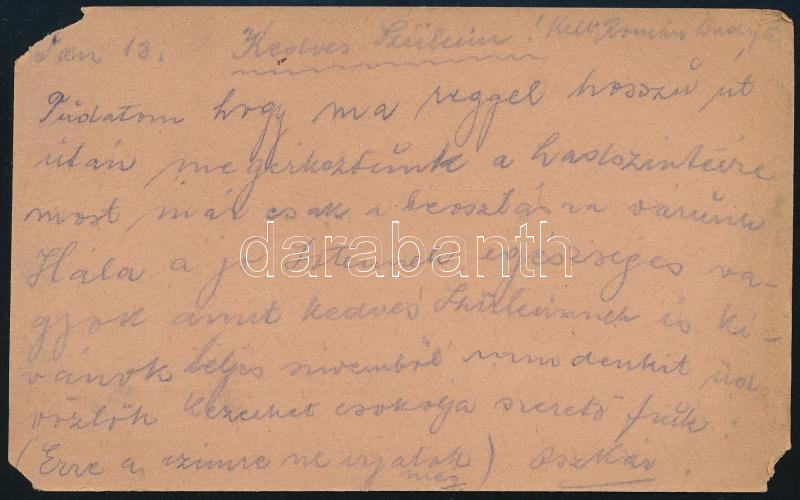 Jan 13. Kedves Szüleim! Kelt Román
Tudatom hogy ma reggel hosszú út
után megérkeztünk a hadszintérre
most már csak a beosztásra várunk
Hála a jó Istennek egészséges va-
gyok amit kedves Szüleimnek is ki-
vánok teljes szivemből mindenkit üd
vözlök kezeiket csokolja szerető fiuk:
(Erre a czimre ne irjatok) Oszkár.
még
darabanth